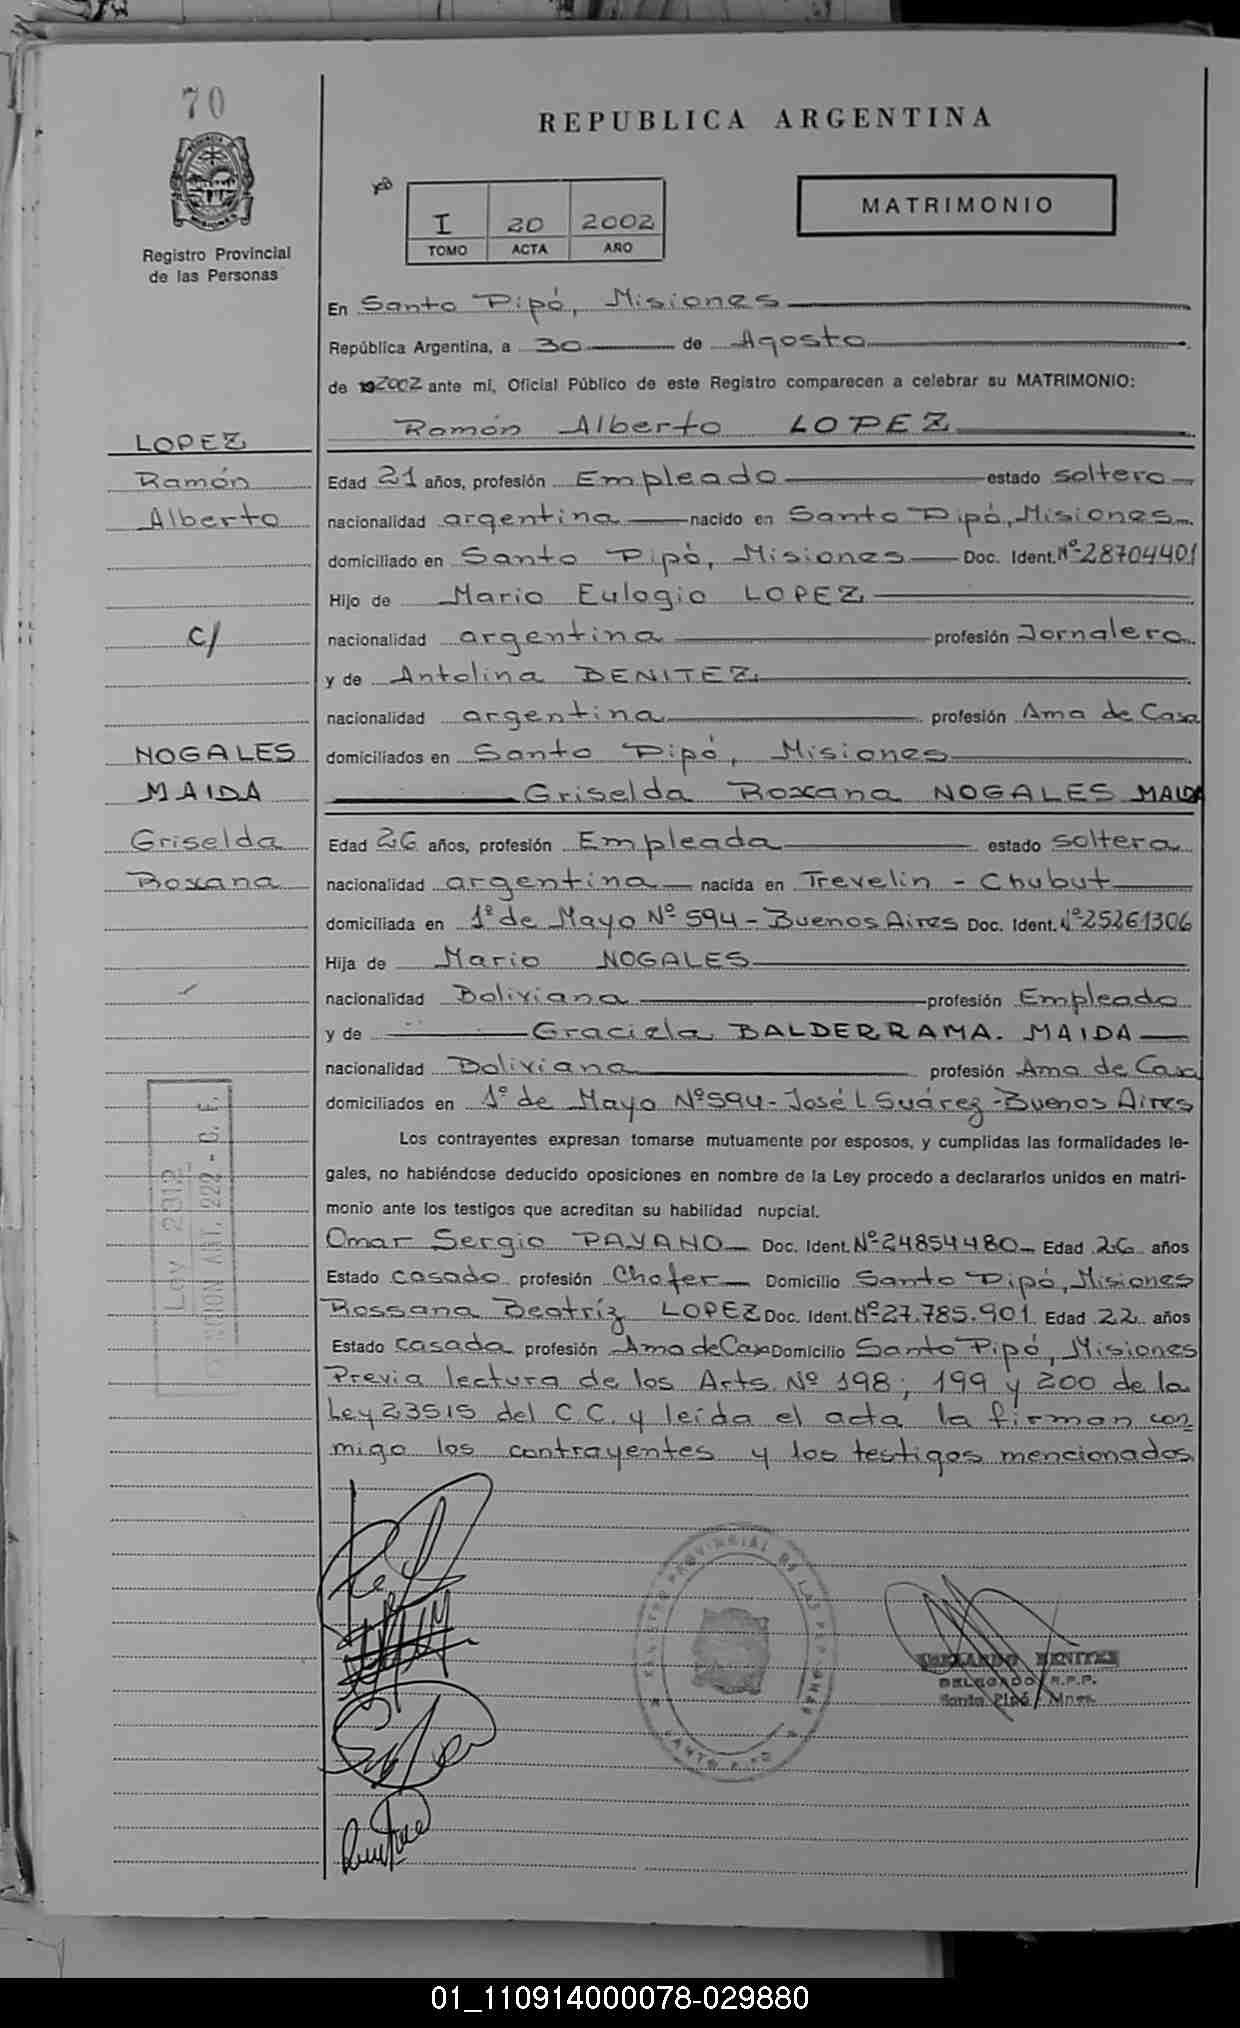 70
Registro Provincial
de las Personas
REPUBLICA ARGENTINA
I 20 2002
TOMO ACTA AÑO
MATRIMONIO
En Santo Pipó, Misiones
República Argentina, a 30 de Agosto
de 2002 ante mí, Oficial Público de este Registro comparecen a celebrar su MATRIMONIO:
Ramón Alberto LOPEZ
LOPEZ
Ramón
Alberto
c/
NOGALES
MAIDA
Griselda
Roxana
Edad 21 años, profesión Empleado estado soltero
nacionalidad argentina nacido en Santo Pipó, Misiones
domiciliado en Santo Pipó, Misiones Doc. Ident. Nº 28704401
Hijo de Mario Eulogio LOPEZ
nacionalidad argentina profesión Jornalero
y de Antolina BENITEZ
nacionalidad argentina profesión Ama de Casa
domiciliados en Santo Pipó, Misiones
Griselda Roxana NOGALES MAIDA
Edad 26 años, profesión Empleada estado soltera
nacionalidad argentina nacida en Trevelin - Chubut
domiciliada en 1º de Mayo Nº 594 - Buenos Aires Doc. Ident. Nº 25261306
Hija de Mario NOGALES
nacionalidad Boliviana profesión Empleado
y de Graciela BALDERRAMA. MAIDA
nacionalidad Boliviana profesión Ama de Casa
domiciliados en 1º de Mayo Nº 594 - José L Suárez - Buenos Aires
Los contrayentes expresan tomarse mutuamente por esposos, y cumplidas las formalidades le-
gales, no habiéndose deducido oposiciones en nombre de la Ley procedo a declararlos unidos en matri-
monio ante los testigos que acreditan su habilidad nupcial.
Omar Sergio PAYANO Doc. Ident. Nº 24854480 Edad 26 años
Estado casado profesión Chofer Domicilio Santo Pipó, Misiones
Rossana Beatríz LOPEZ Doc. Ident. Nº 27.785.901 Edad 22 años
Estado casada profesión Ama de Casa Domicilio Santo Pipó, Misiones
Previa lectura de los Arts. Nº 198; 199 y 200 de la
Ley 23515 del C.C. y leída el acta la firman con
migo los contrayentes y los testigos mencionados
Ley 2312
ART. 222 - C. F.
REGISTRO PROVINCIAL DE LAS PERSONAS
SANTO PIPO
BENITEZ
DELEGADO R.P.P.
Santo Pipó Mnes.
01_110914000078-029880